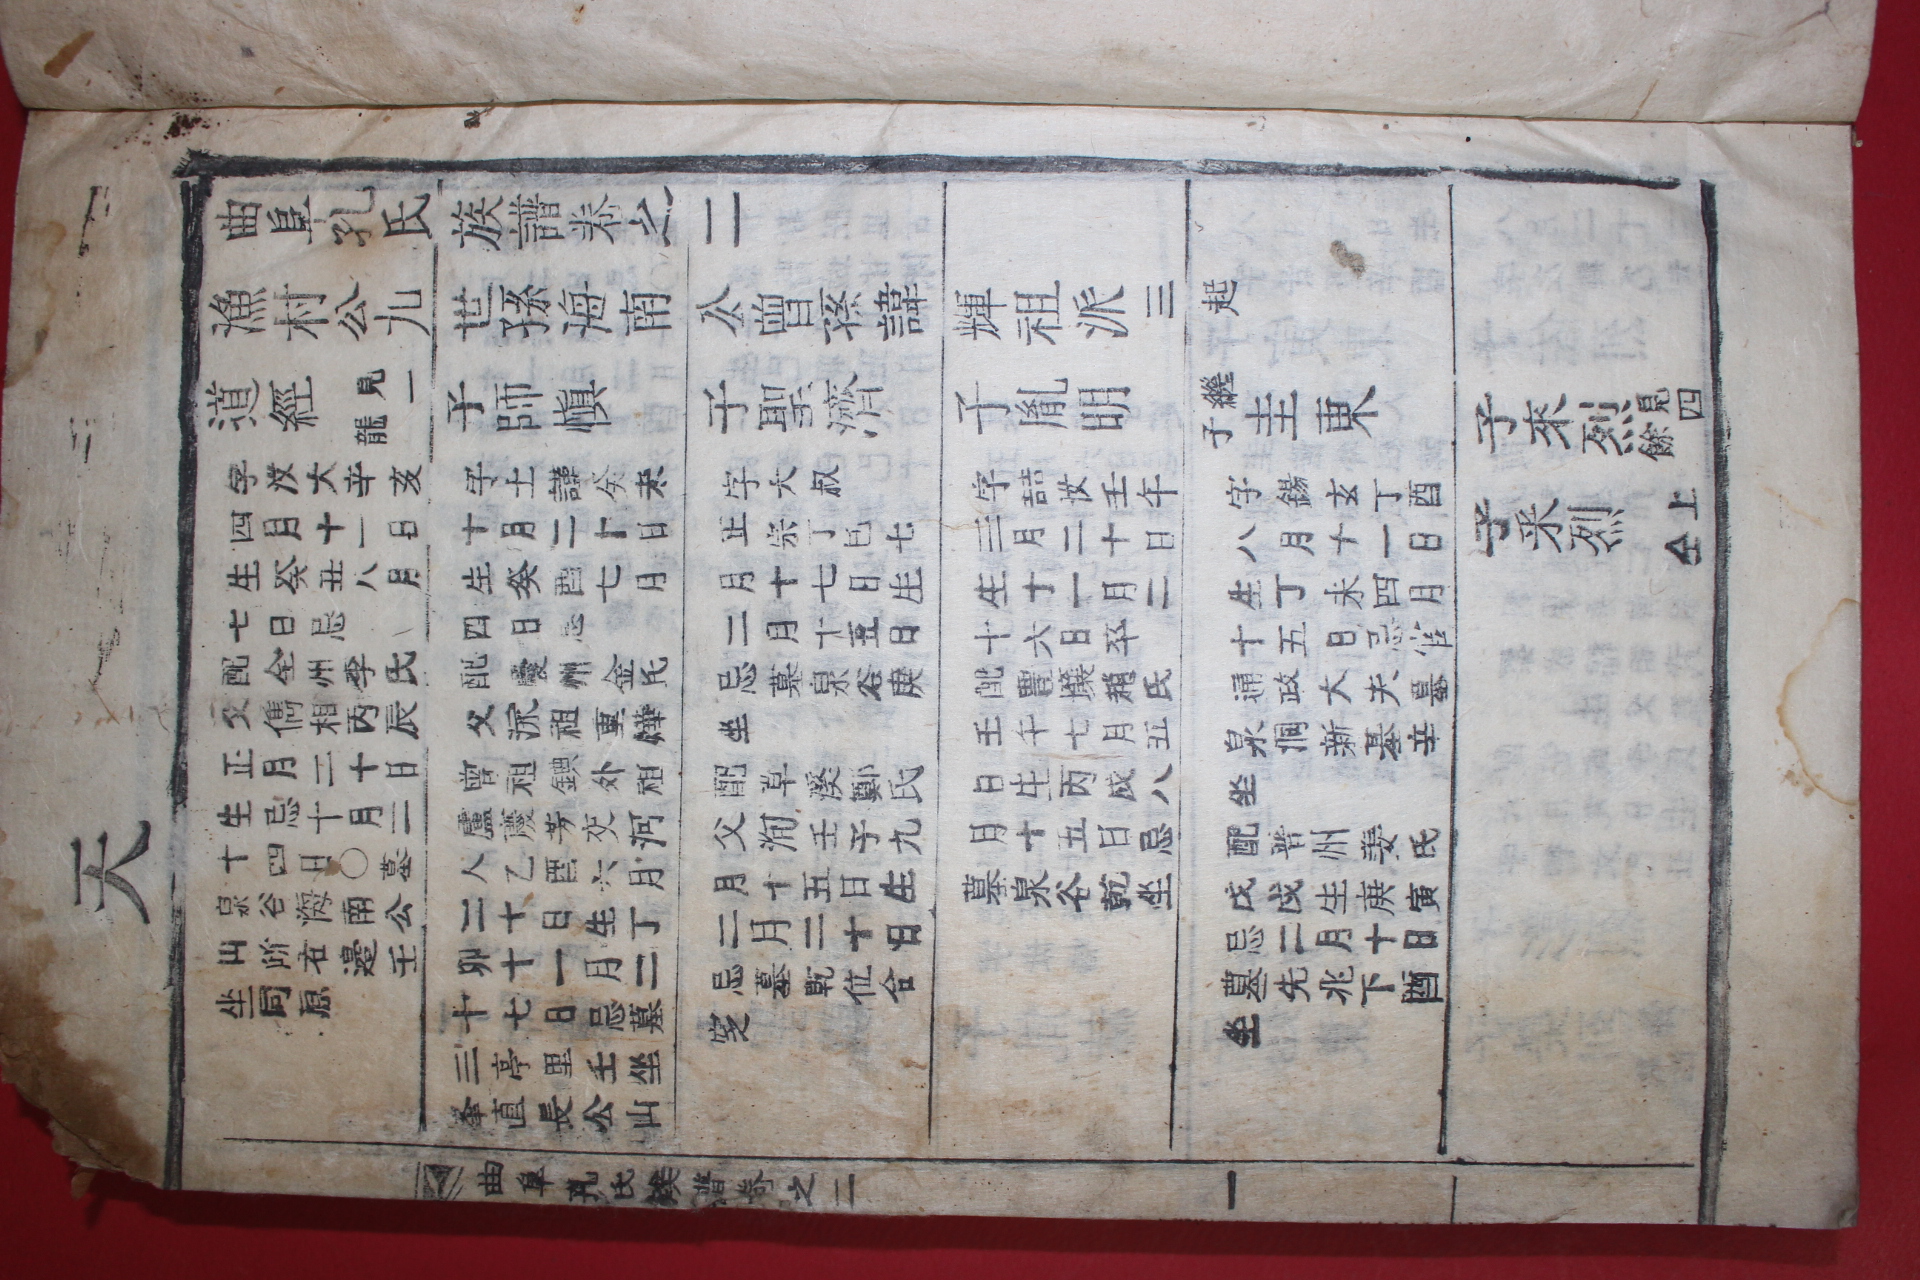 天
曲阜孔氏族譜卷之二
漁村公九世孫海南公曾孫諱輝祖派三
起
道經
見一
龍
字汝大辛亥
四月十一日
生癸丑八月
七日忌
配全州李氏
父儁相丙辰
正月二十日
生忌十月二
十四日○墓
泉谷海南公
山所右邊壬
坐同原
子師愼
字士謹癸未
十月二十日
生癸酉七月
四日忌
配慶州金氏
父泳祖重燁
曾祖錪外祖
盧慶芳交河
人乙酉六月
二十日生丁
卯十一月二
十七日忌墓
三亭里壬坐
峯直長公山
子聖濟
字大叔
正宗丁巳七
月十七日生
二月十五日
忌墓泉谷庚
坐
配草溪鄭氏
父洵壬子九
月十五日生
二月二十日
忌墓乾位合
窆
子胤明
字喆汝壬午
三月二十日
生十一月二
十六日卒
配豊壤趙氏
壬午七月五
日生丙戌八
月十五日忌
墓泉谷乾坐
繼
子圭東
字錫玄丁酉
八月十一日
生丁未四月
十五日忌官
通政大夫墓
泉洞新基辛
坐
配晉州姜氏
戊戌生庚寅
忌二月十日
墓先兆下酉
坐
子來烈
見四
餘
子采烈
仝上
曲阜孔氏族譜卷之二
一